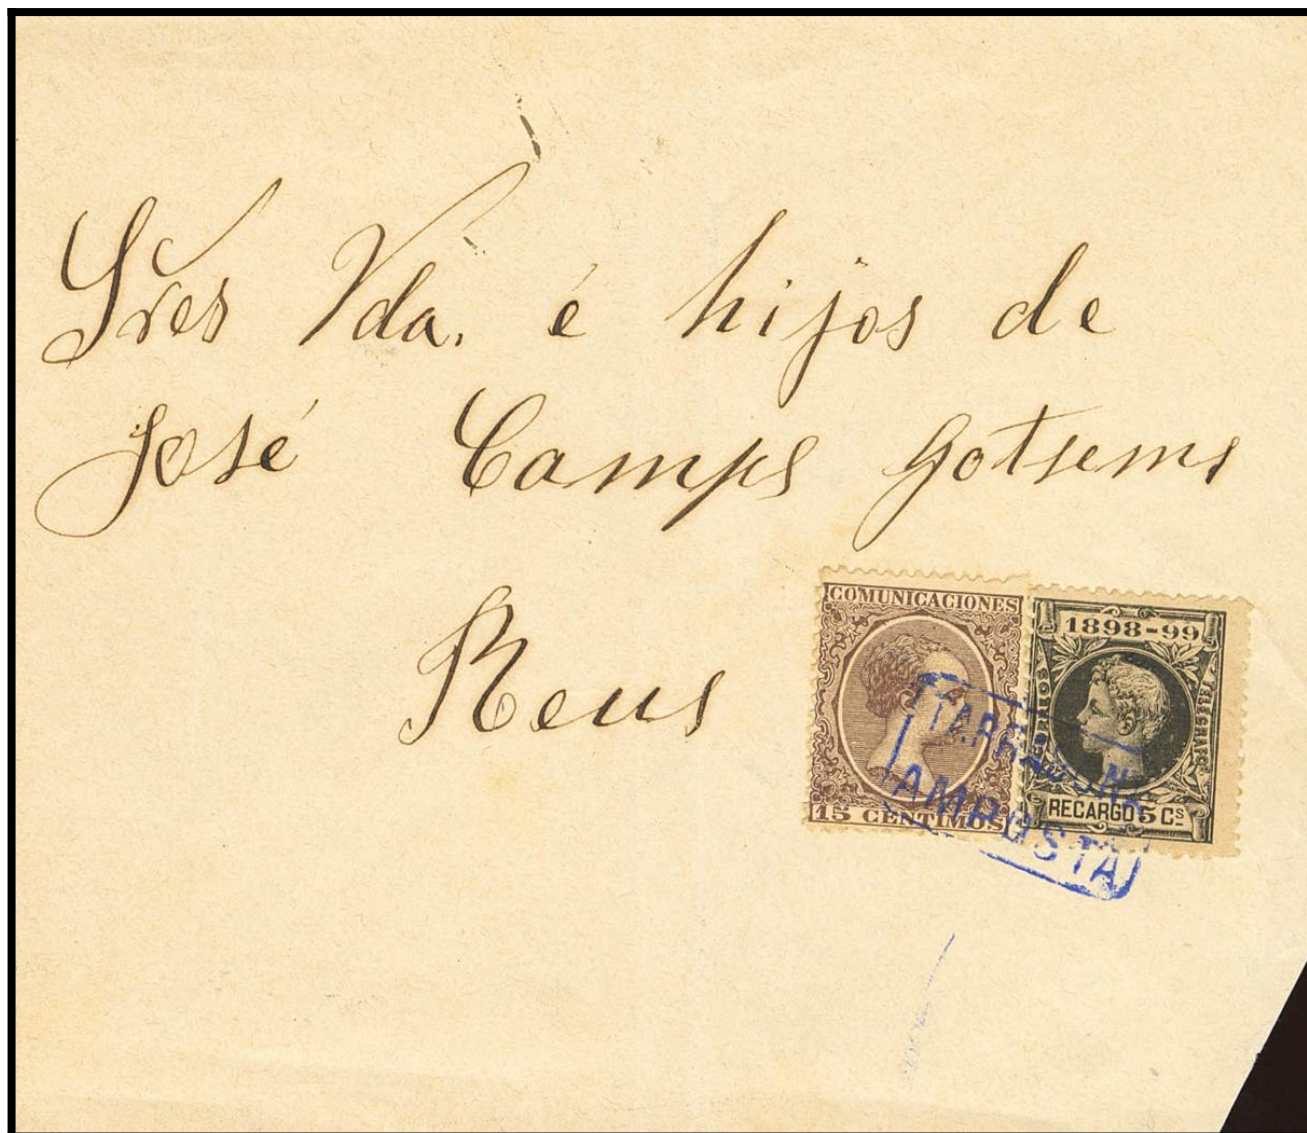 Sres Vda. é hijos de
José Camps Gotsems
Reus
COMUNICACIONES
15 CENTIMOS
1898-99
CORREOS
TELEGRAFOS
RECARGO 5 Cs
TARRAGONA
AMPOSTA